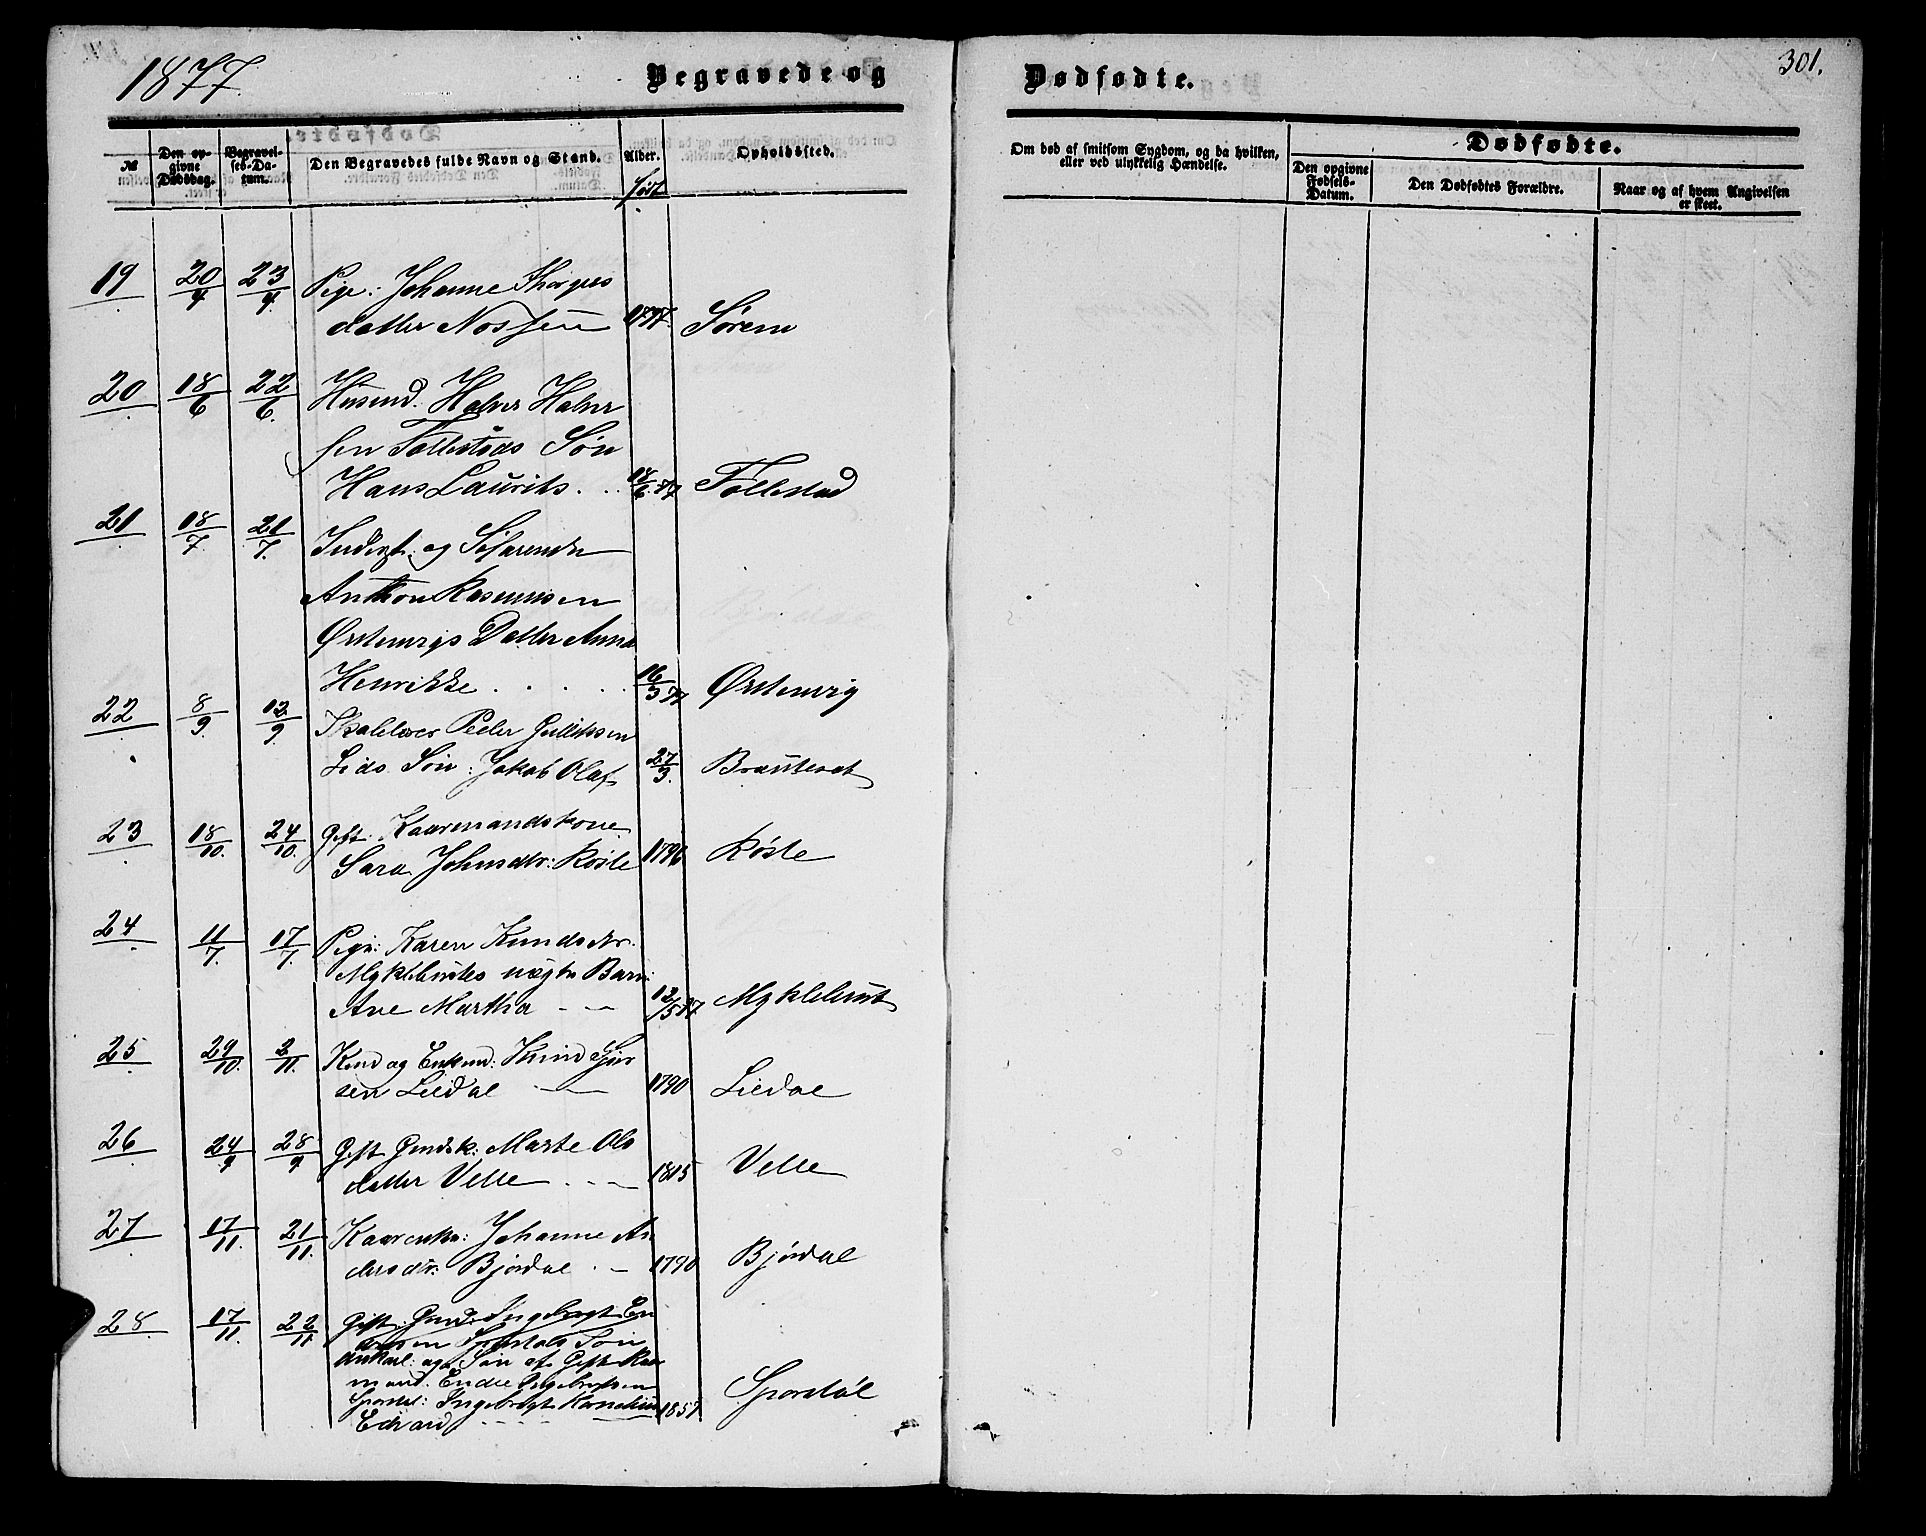 1877.
Begravede og
Dødfødte.
301.
№
Den opgivne Dødsdag.
Begravelses-Datum.
Den Begravedes fulde Navn og Stand.
Alder.
født
Opholdssted.
Om død af smitsom Sygdom, og da hvilken, eller ved ulykkelig Hændelse.
Dødfødte.
Den opgivne Fødsels-Datum.
Den Dødfødtes Forældre.
Naar og af hvem Angivelsen er skeet.
19 20/4 23/4 Pige: Johanne
datter Sørem
20 18/6 22/6 Husmd. Halvor Halvor
sen Follestads Søn
Hans Laurits. . . 18/6 77 Follestad
21 18/7 21/7 Inderst og
Anthon Rasmussen
Østenvigs Datter Anna
Henrikke . . . . 16/3 77 Østenvig
22 8/9 12/9 Skolelærer Peder Gulliksen
Lids Søn: Jakob Olaf 27/3. Brauteset
23 18/10. 24/10. Gift Kaarmandskone
Sara Johnsdtr: Røste 1796 Røste
24 11/7. 17/7. Pige: Karen Knudsdtr.
Myklebustes uægte Barn:
Ane Martha - - 12/5 77 Myklebust
25 29/10. 2/11. Kmd og Enkemd: Knud
sen Liedal — 1790 Liedal
26 24/9 28/9 Gift Gmdsk: Marte Ols
datter Velle . . - 1815 Velle
27 17/11. 21/11. Kaarenke: Johanne An
dersdtr. Bjørdal . - 1790 Bjørdal
28 17/11. 22/11 Gift: Gmd: Ingebrigt En
dresen Søn
Ungkarl: og Søn af Gift Kaar
mand. Endre Ingebrigtsen
Ingebrigt Kornelius
Edvard - - - - 1857